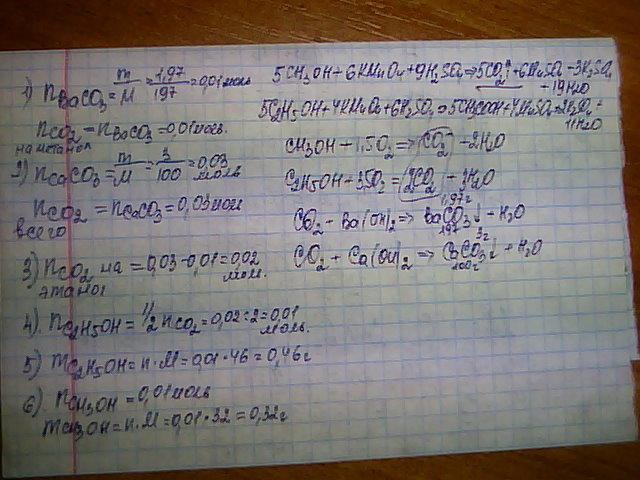 1) nBaCO3 = m/M = 1,97/197 = 0,01 моль
nCO2 = nBaCO3 = 0,01 моль.
на метанол
2) nCaCO3 = m/M = 3/100 = 0,03 моль
nCO2 = nCaCO3 = 0,03 моль
всего
3) nCO2 на = 0,03-0,01 = 0,02 моль.
этанол
4). nC2H5OH = 1/2 nCO2 = 0,02:2 = 0,01 моль.
5) mC2H5OH = n·M = 0,01·46 = 0,46г
6). nCH3OH = 0,01 моль
mCH3OH = n·M = 0,01·32 = 0,32г
5CH3OH + 6KMnO4 + 9H2SO4 => 5CO2↑ + 6MnSO4 + 3K2SO4
+ 19H2O
5C2H5OH + 4KMnO4 + 6H2SO4 => 5CH3COOH + 4MnSO4 + 2K2SO4 +
11H2O
CH3OH + 1,5O2 => CO2 + 2H2O
C2H5OH + 3O2 = 2CO2 + 3H2O
1,97г
CO2 + Ba(OH)2 => BaCO3↓ + H2O
197
3г
CO2 + Ca(OH)2 => CaCO3↓ + H2O
100г